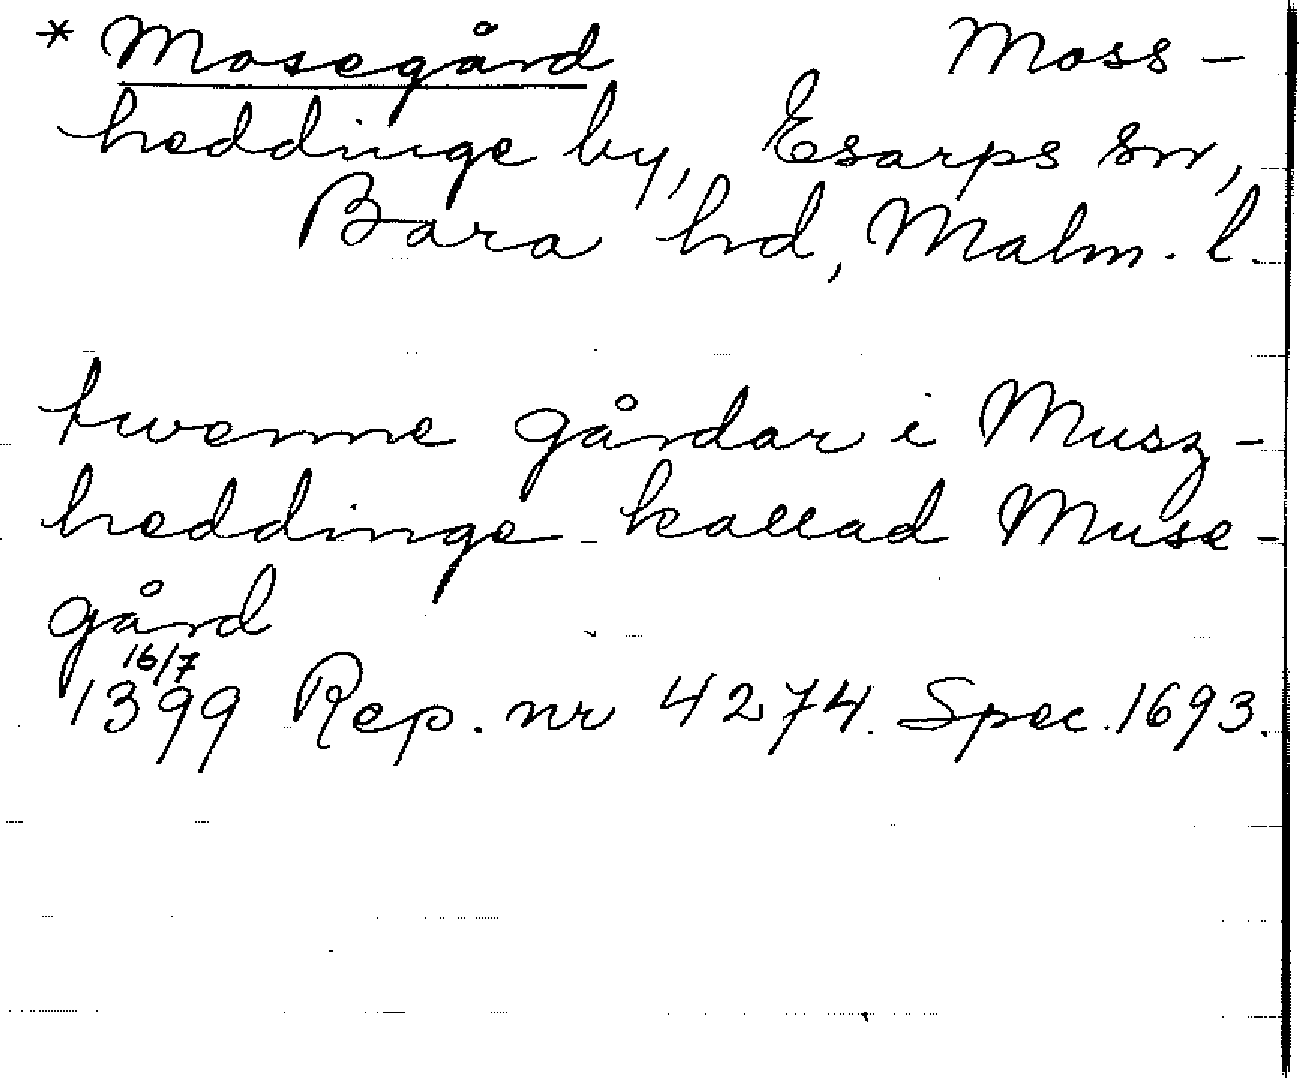 * Mosegård Moss-
heddinge by, Esarps sn,
Bara hd, Malm. l.
twenne gårdar i Musz-
heddinge kallad Muse-
gård
16/7
1399 Rep. nr 4274. Spec. 1693.